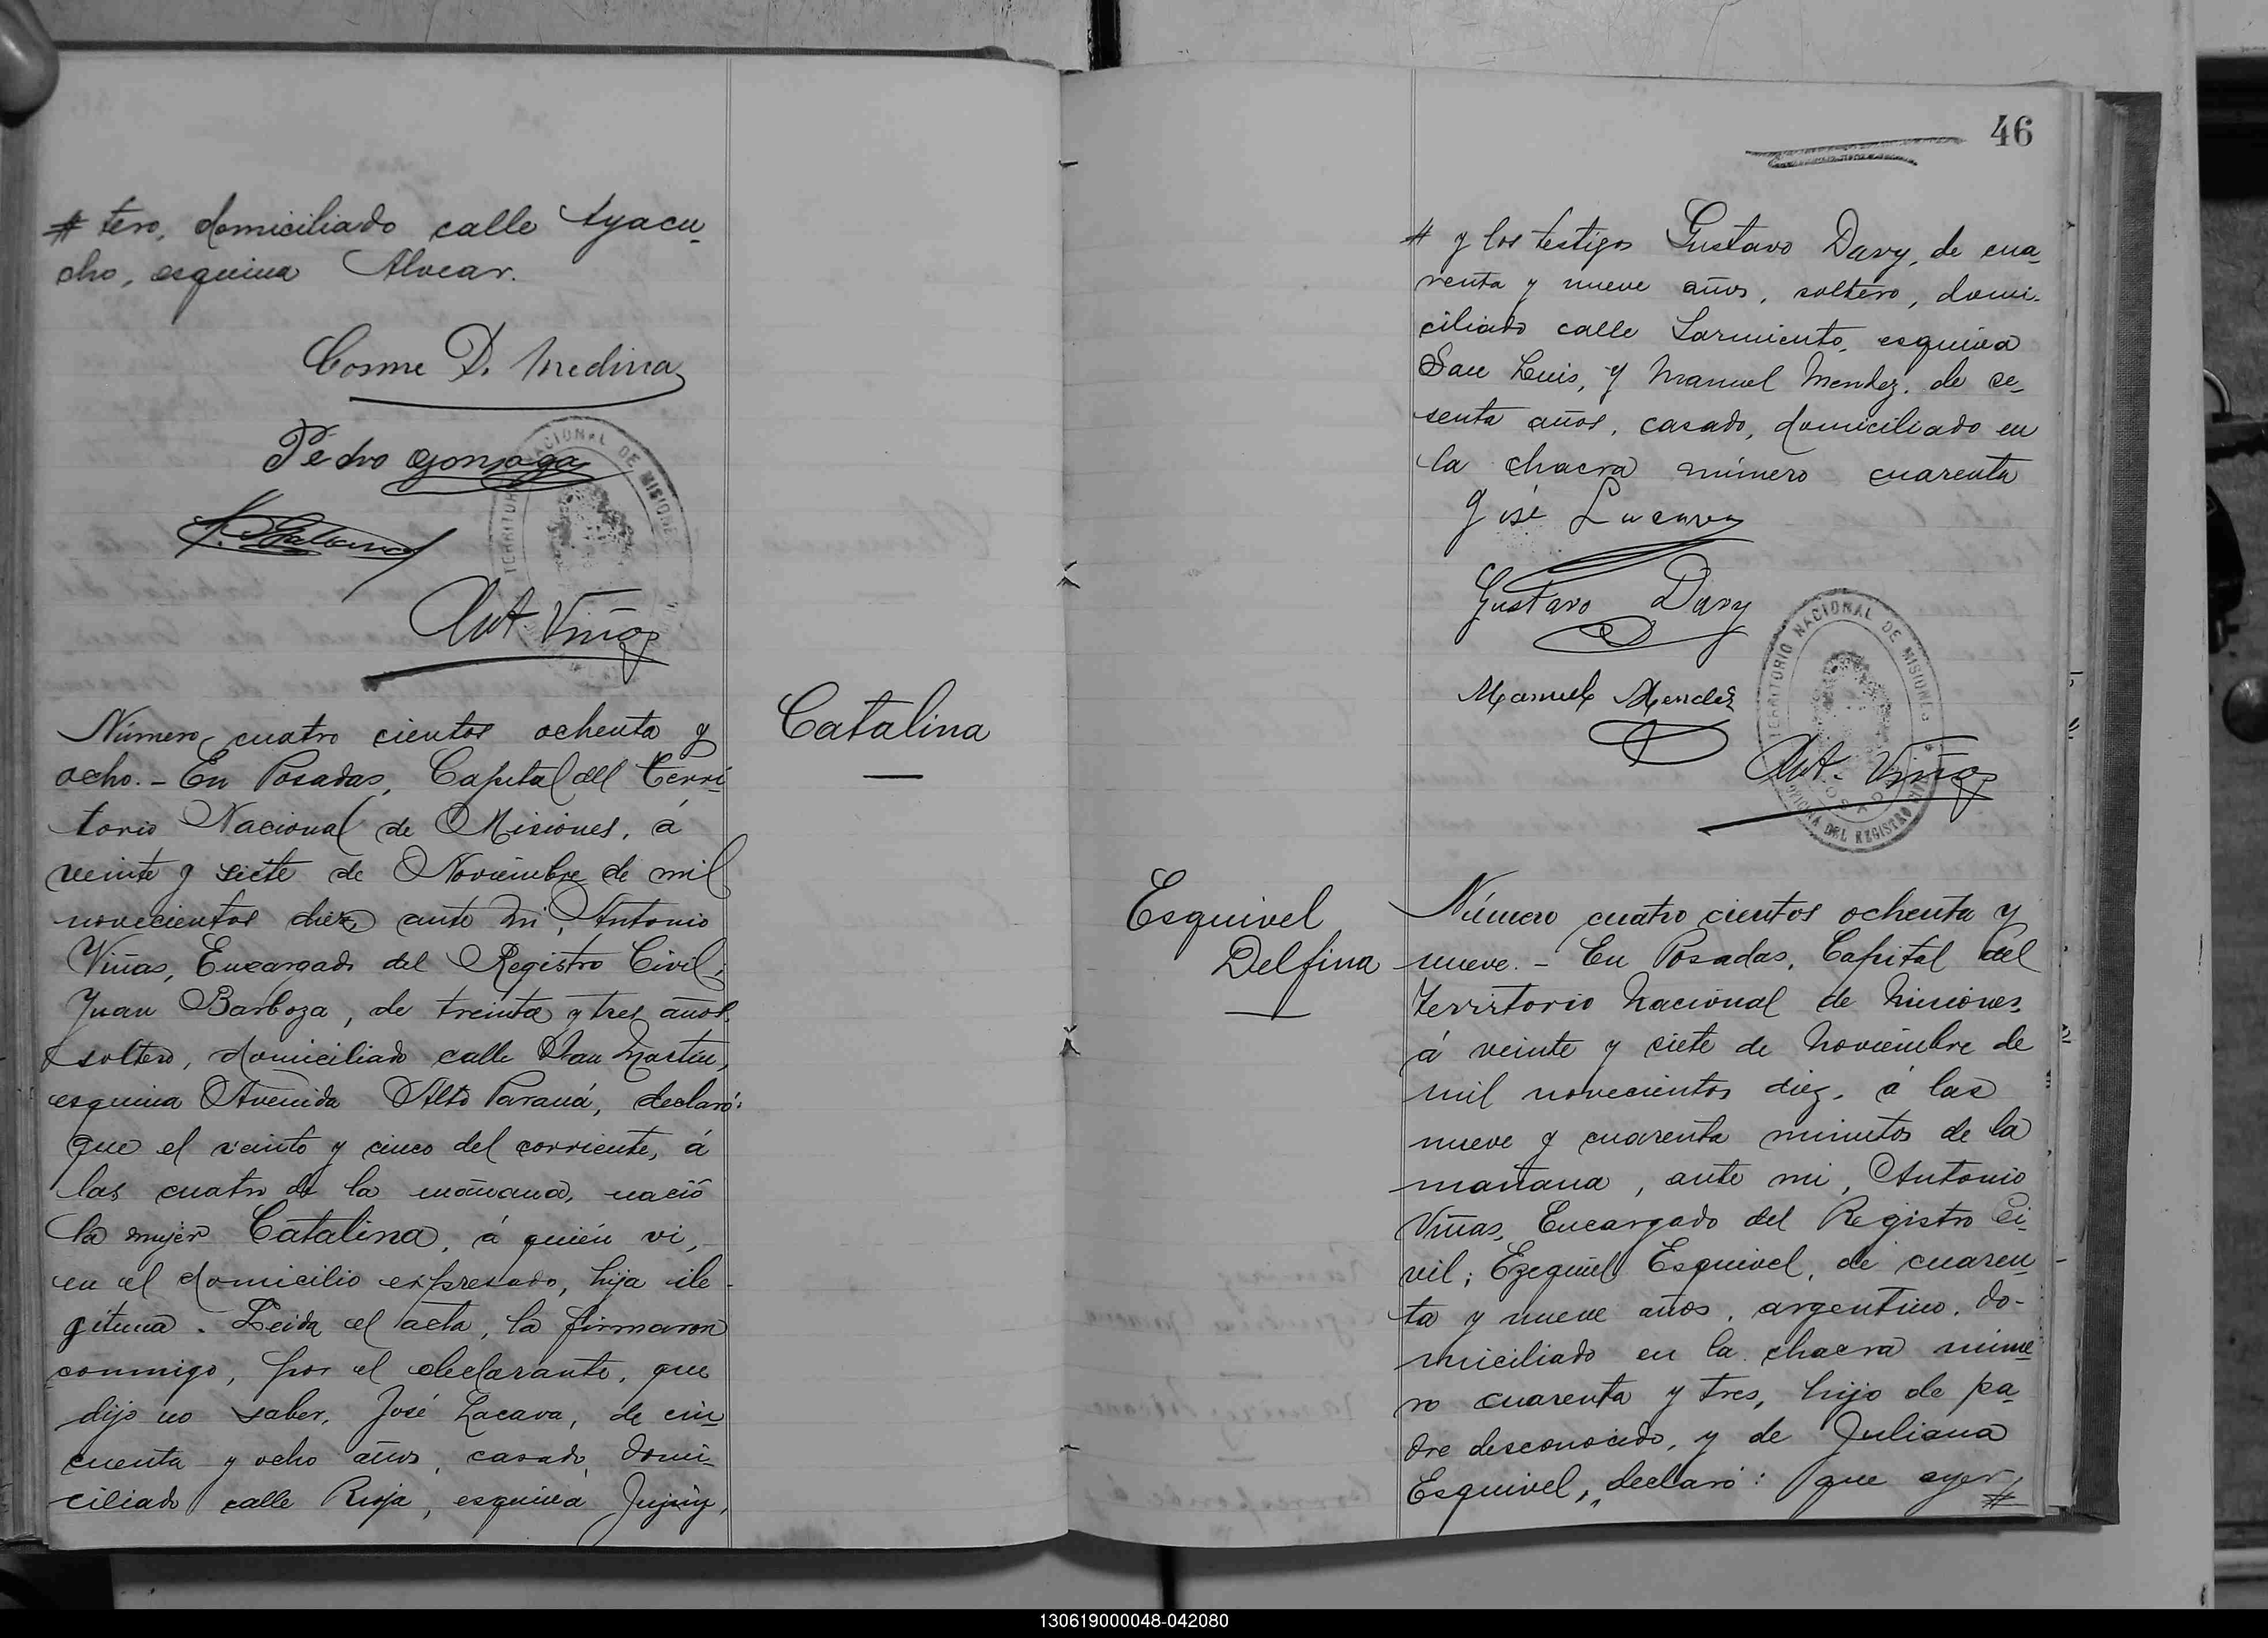 # tero, domiciliado calle Ayacu-
cho, esquina Alvear.
Cosme D. Medina
Pedro Gonzaga
Ant. Viñas
Número cuatro cientos ochenta y
ocho. - En Posadas, Capital del Terri-
torio Nacional de Misiones, á
veinte y siete de Noviembre de mil
novecientos diez, ante mi, Antonio
Viñas, Encargado del Registro Civil;
Juan Barboza, de treinta y tres años,
soltero, domiciliado calle San Martin,
esquina Avenida Alto Paraná, declaró:
que el veinte y cinco del corriente, á
las cuatro de la mañana, nació
la mujer Catalina, á quién vi,
en el domicilio expresado, hija ile-
gitima. Leida el acta, la firmaron
conmigo, por el declarante, que
dijo no saber, José Lacava, de cin-
cuenta y ocho años, casado, domi-
ciliado calle Rioja, esquina Jujuy,
Catalina
46
# y los testigos Gustavo Davy, de cua-
renta y nueve años, soltero, domi-
ciliado calle Sarmiento, esquina
San Luis, y Manuel Mendez, de se-
senta años, casado, domiciliado en
la chacra número cuarenta
José Lacava
Gustavo Davy
Manuel Mendez
Ant. Viñas
TERRITORIO NACIONAL DE MISIONES
OFICINA DEL REGISTRO CIVIL
Esquivel
Delfina
Número cuatro cientos ochenta y
nueve. - En Posadas, Capital del
Territorio Nacional de Misiones,
á veinte y siete de Noviembre de
mil novecientos diez, á las
nueve y cuarenta minutos de la
mañana, ante mi, Antonio
Viñas, Encargado del Registro Ci-
vil; Ezequiel Esquivel, de cuaren-
ta y nueve años, argentino, do-
miciliado en la chacra núme-
ro cuarenta y tres, hijo de pa-
dre desconocido, y de Juliana
Esquivel, declaró: que ayer,
#
130619000048-042080